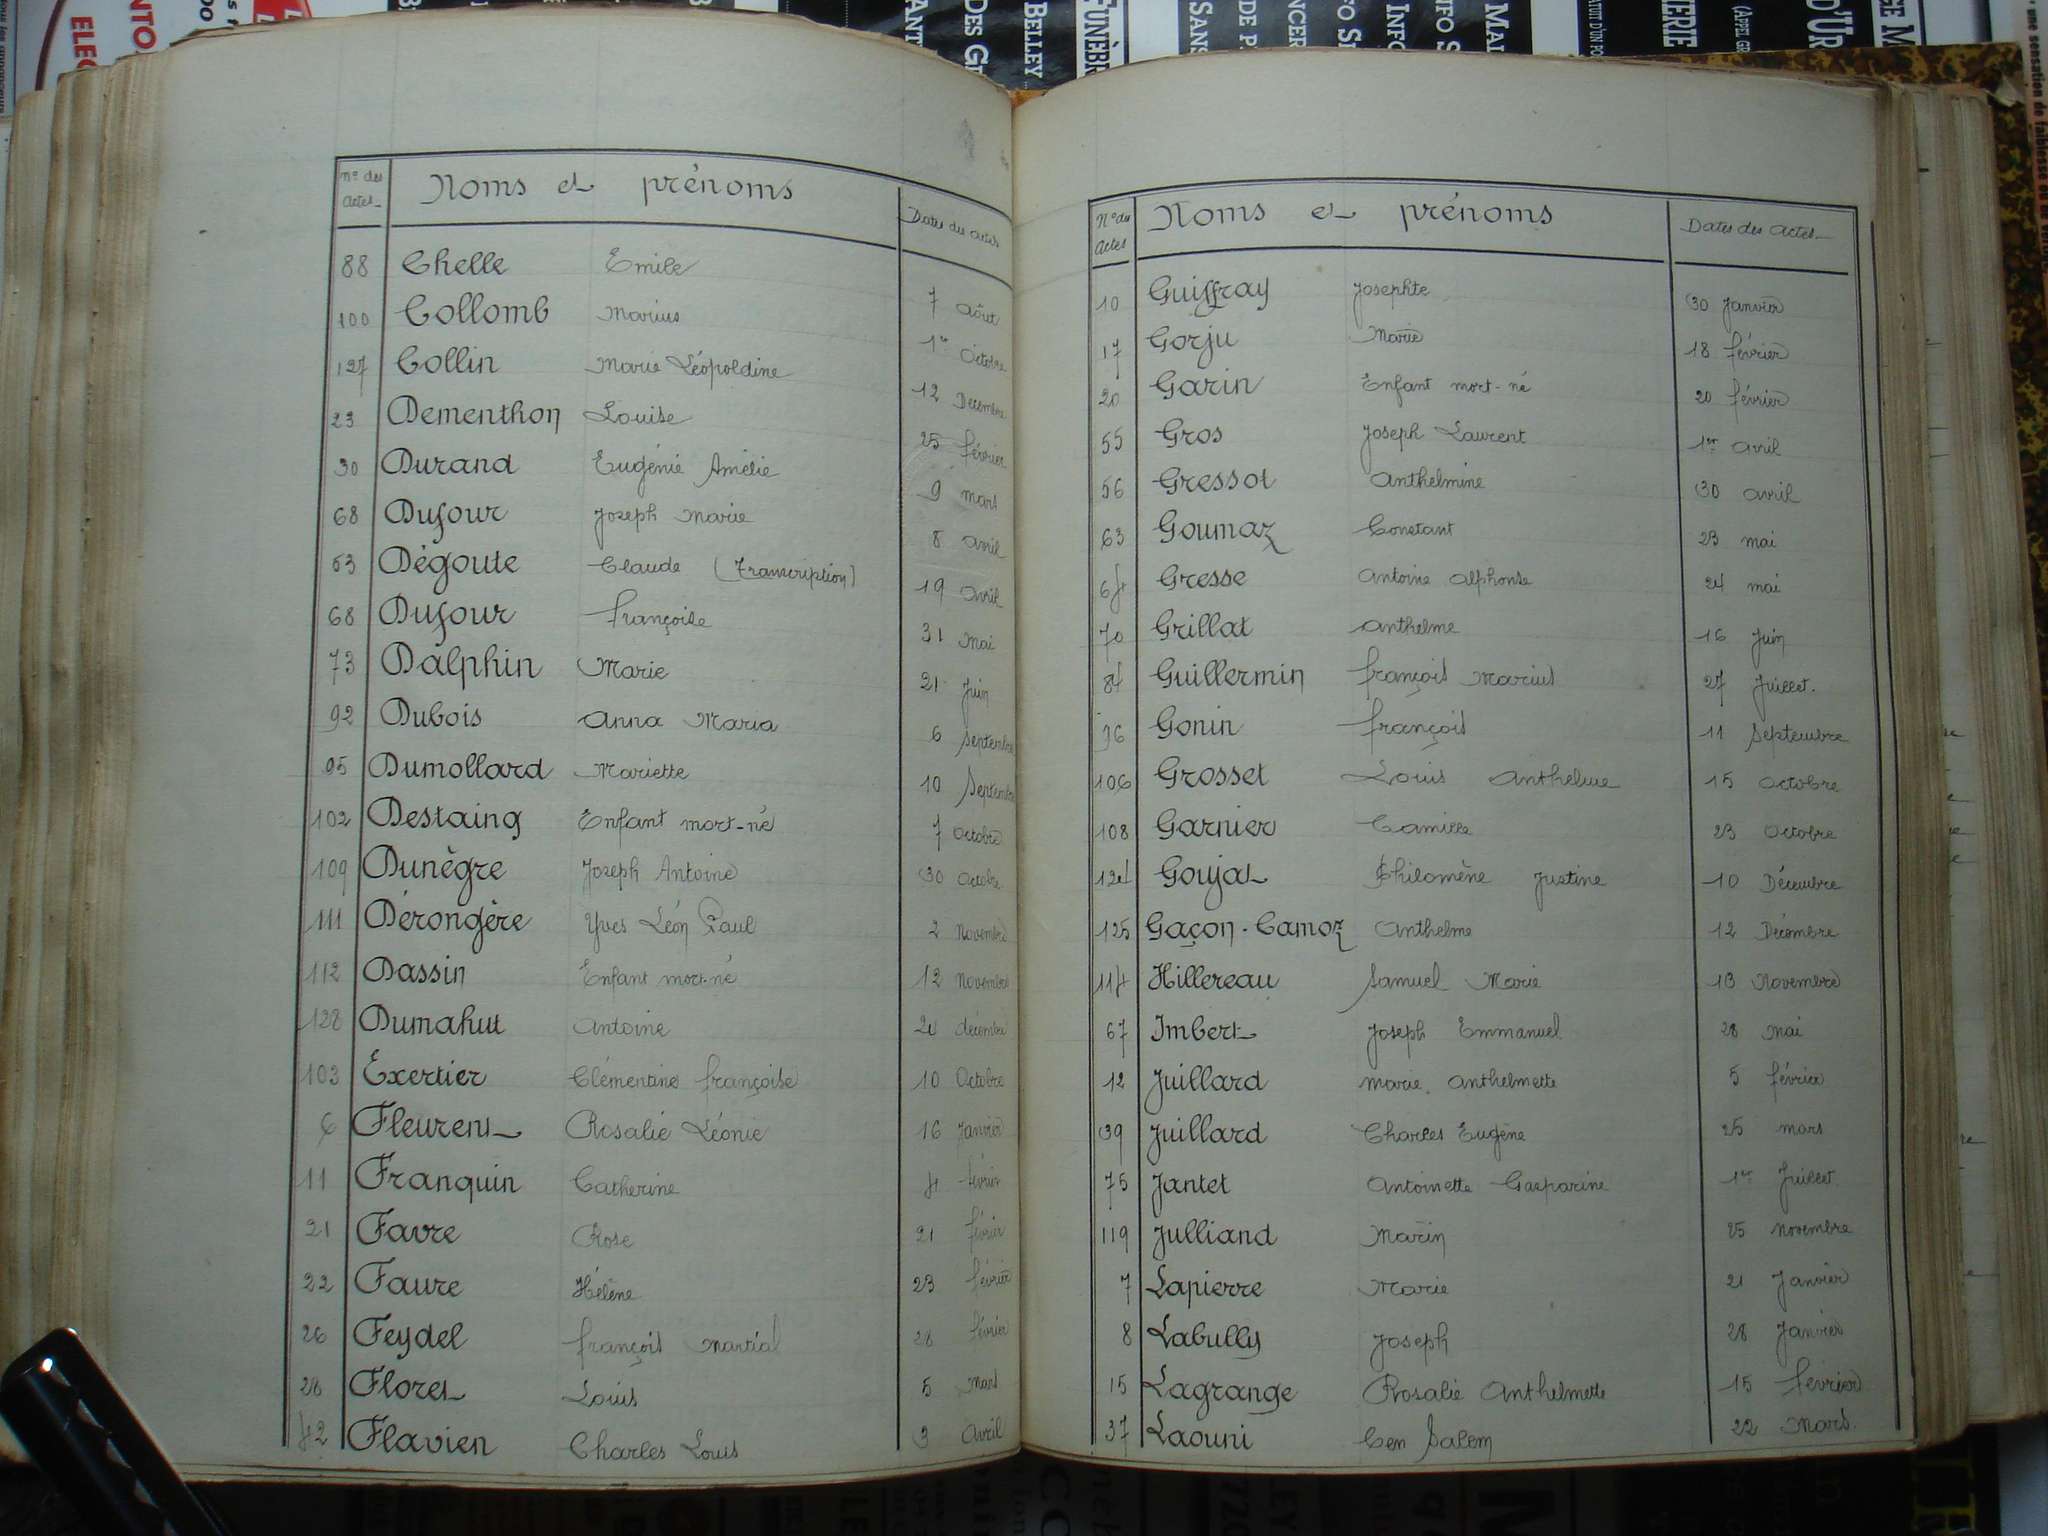 ELEC
BELLEY
DES G
ANT
FUNÈBR
SANS
DE P
INFO S
INFO
MAI
NERIE
(APPEL GR
D'UR
GE M
une sensation de faiblesse et de
n° des actes Noms et prénoms Dates des actes
88 Chelle Emile 7 août
100 Collomb Marius 1er Octobre
127 Collin Marie Léopoldine 12 Décembre
23 Dementhon Louise 25 février
30 Durand Eugénie Amélie 9 mars
68 Dufour Joseph Marie 8 avril
53 Dégoute Claude (Transcription) 19 avril
68 Dufour françoise 31 Mai
73 Dalphin Marie 21 Juin
92 Dubois Anna Maria 6 Septembre
95 Dumollard Mariette 10 Septembre
102 Destaing Enfant mort-né 7 Octobre
109 Dunègre Joseph Antoine 30 Octobre
111 Dérongère Yves Léon Paul 2 Novembre
112 Dassin Enfant mort-né 12 Novembre
128 Dumahut Antoine 24 décembre
103 Exertier Clémentine françoise 10 Octobre
6 Fleurent Rosalie Léonie 16 Janvier
11 Franquin Catherine 4 février
21 Favre Rose 21 février
22 Faure Hélène 23 février
26 Feydel françois Martial 28 février
28 Floret Louis 5 Mars
42 Flavien Charles Louis 3 Avril
N° des actes Noms et prénoms Dates des actes
10 Guiffray Josephte 30 Janvier
17 Gorju Marie 18 février
20 Garin Enfant mort-né 20 février
55 Gros Joseph Laurent 1er avril
56 Gressot Anthelmine 30 avril
63 Goumaz Constant 23 mai
64 Gresse Antoine Alphonse 24 mai
70 Grillat Anthelme 16 Juin
84 Guillermin françois Marius 27 Juillet.
96 Gonin françois 11 Septembre
106 Grosset Louis Anthelme 15 Octobre
108 Garnier Camille 23 Octobre
124 Goujat Philomène Justine 10 Décembre
125 Gaçon-Camoz Anthelme 12 Décembre
114 Hillereau Samuel Marie 13 Novembre
67 Imbert Joseph Emmanuel 28 Mai
12 Juillard Marie Anthelmette 5 février
39 Juillard Charles Eugène 25 mars
75 Jantet Antoinette Gasparine 1er Juillet
119 Julliand Marin 25 novembre
7 Lapierre Marie 21 Janvier
8 Labully Joseph 28 Janvier
15 Lagrange Rosalie Anthelmette 15 février
37 Laouni ben Salem 22 Mars